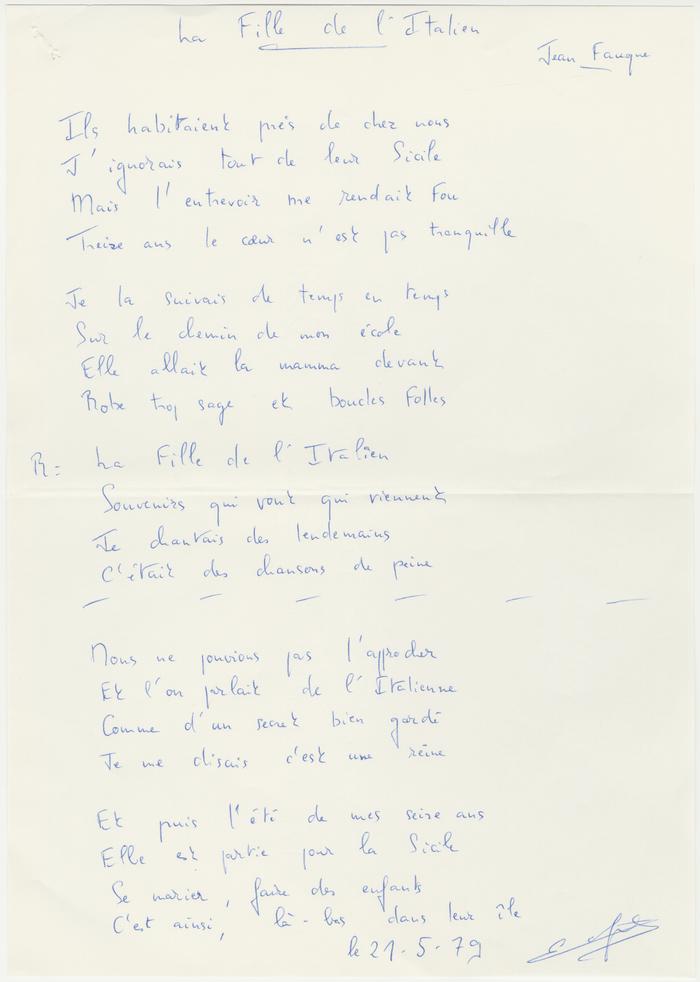 La Fille de l'Italien
Jean Fauque
Ils habitaient près de chez nous
J'ignorais tout de leur Sicile
Mais l'entrevoir me rendait Fou
Treize ans le cœur n'est pas tranquille
Je la suivais de temps en temps
Sur le chemin de mon école
Elle allait la mamma devant
Robe trop sage et boucles Folles
R= La Fille de l'Italien
Souvenirs qui vont qui viennent
Je chantais des lendemains
C'était des chansons de peine
Nous ne pouvions pas l'approcher
Et l'on parlait de l'Italienne
Comme d'un secret bien gardé
Je me disais c'est une reine
Et puis l'été de mes seize ans
Elle est partie pour la Sicile
Se marier, faire des enfants
C'est ainsi, là-bas dans leur île
le 21-5-79